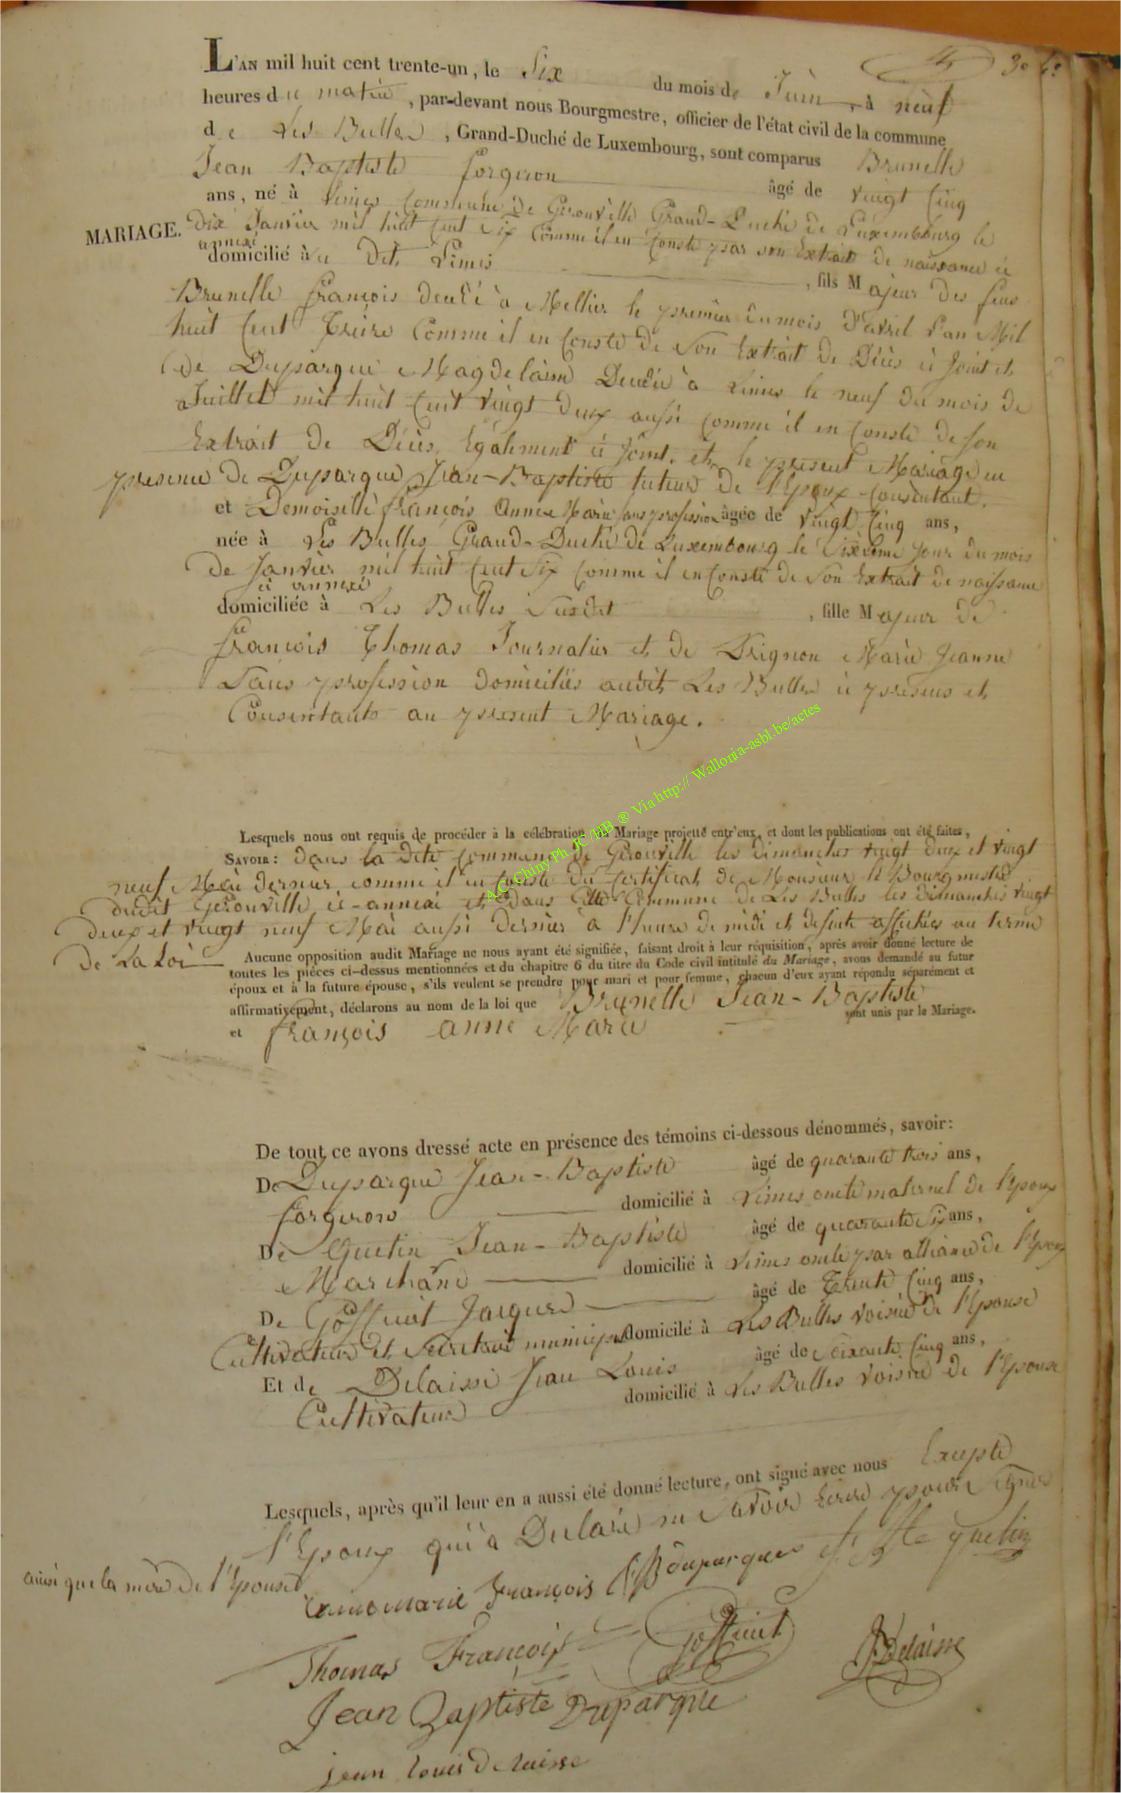 3e
L'AN mil huit cent trente-un, le Six du mois de Juin, à neuf
heures du matin, par-devant nous Bourgmestre, officier de l'état civil de la commune
de Les Bulles, Grand-Duché de Luxembourg, sont comparus Brunelle
Jean Baptiste forgeron âgé de vingt cinq
ans, né à Limes Commune de Gérouville Grand-Duché de Luxembourg le
MARIAGE.
dix Janvier mil huit cent six comme il en conste par son Extrait de naissance ci
annexé
domicilié à dit Limes, fils Majeur des feus
Brunelle François decédé à Mellier le premier du mois d'avril l'an Mil
huit Cent treize Comme il en Conste de Son Extrait de Décès ci Joint et
de Duparque Magdelaine Decédée à Limes le neuf du mois de
Juillet mil huit cent vingt deux aussi comme il en conste de son
Extrait de Décès, Egalement ci Joint. et le present Mariage en
presence de Duparque Jean-Baptiste tuteur de l'Epoux Consentant.
et Demoiselle François Anne Marie sans profession âgée de vingt Cinq ans,
née à Les Bulles Grand-Duché de Luxembourg le Sixième Jour du mois
De Janvier mil huit Cent Six Comme il en Conste de Son Extrait de naissance
ci annexé
domiciliée à Les Bulles Susdit, fille Majeur de
François Thomas Journalier et de Drignon Marie Jeanne
Sans profession domiciliés audit Les Bulles ci presens et
Consentants au present Mariage.
A.C. Chiny Ph JC/HB ® Via http:// Wallonia-asbl.be/actes
Lesquels nous ont requis de procéder à la célébration du Mariage projetté entr'eux, et dont les publications ont été faites,
SAVOIR: dans la dite Commune de Gérouville les dimanches vingt deux et vingt
neuf Mai dernier comme il en conste du Certificat de Monsieur le Bourgmestre
dudit Gérouville ci-annexé et Dans cette Commune de Les Bulles les dimanches vingt
deux et vingt neuf Mai aussi dernier à l'heure de midi et desuite affichées au terme
De La Loi
Aucune opposition audit Mariage ne nous ayant été signifiée, faisant droit à leur réquisition, après avoir donné lecture de
toutes les pièces ci-dessus mentionnées et du chapitre 6 du titre du Code civil intitulé du Mariage, avons demandé au futur
époux et à la future épouse, s'ils veulent se prendre pour mari et pour femme, chacun d'eux ayant répondu séparément et
affirmativement, déclarons au nom de la loi que Brunelle Jean-Baptiste
et François anne Marie sont unis par le Mariage.
De tout ce avons dressé acte en présence des témoins ci-dessous dénommés, savoir:
De Duparque Jean-Baptiste âgé de quarante trois ans,
forgeron domicilié à Limes oncle maternel de l'Epoux
De Guetin Jean-Baptiste âgé de quarante Six ans,
Marchand domicilié à Limes oncle par alliance de l'Epoux
De Goffinet Jacques âgé de Trente Cinq ans,
Cultivateur et Secretaire municipal domicilé à Les Bulles voisin de l'Epouse
Et de Delaisse Jean Louis âgé de Soixante Cinq ans,
Cultivateur domicilié à Les Bulles Voisin de l'Epouse
Lesquels, après qu'il leur en a aussi été donné lecture, ont signé avec nous Excepté
l'Epoux qui a Déclaré ne Savoir Ecrire pour Signer
ainsi que la mère de l'Epouse
annemarie François
Thomas François Goffinet Delaisse
Jean Baptiste Duparque
jean louis delaisse